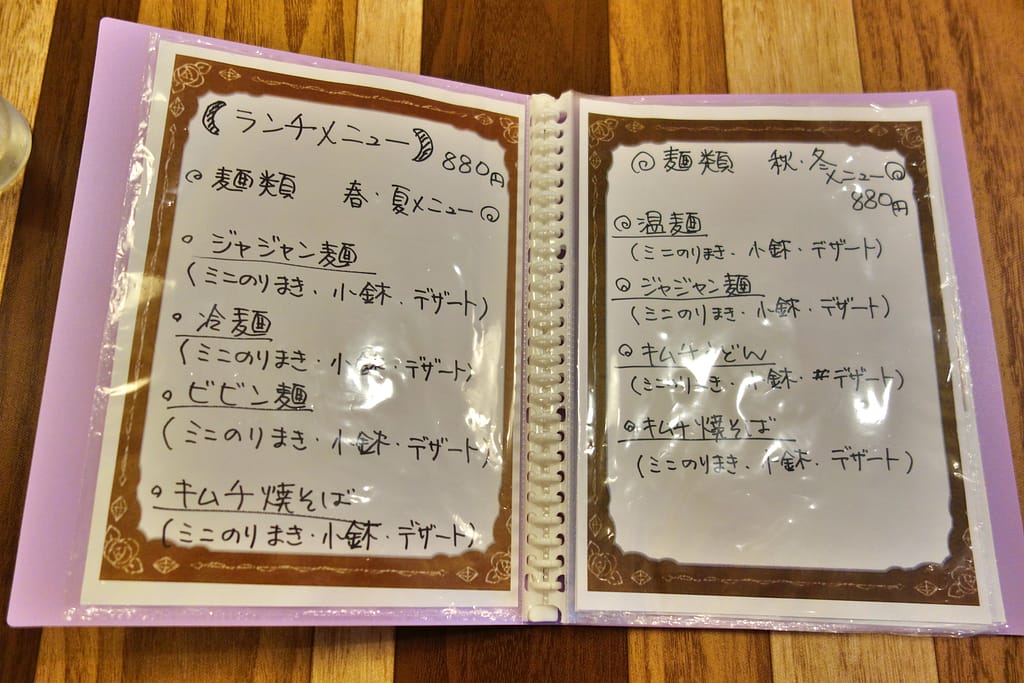 ランチメニュー
880円
麺類 春・夏メニュー
ジャジャン麺
(ミニのりまき・小鉢・デザート)
冷麺
(ミニのりまき・小鉢・デザート)
ビビン麺
(ミニのりまき・小鉢・デザート)
キムチ焼そば
(ミニのりまき・小鉢・デザート)
麺類 秋・冬メニュー
880円
温麺
(ミニのりまき・小鉢・デザート)
ジャジャン麺
(ミニのりまき・小鉢・デザート)
キムチうどん
(ミニのりまき・小鉢・デザート)
キムチ焼そば
(ミニのりまき・小鉢・デザート)